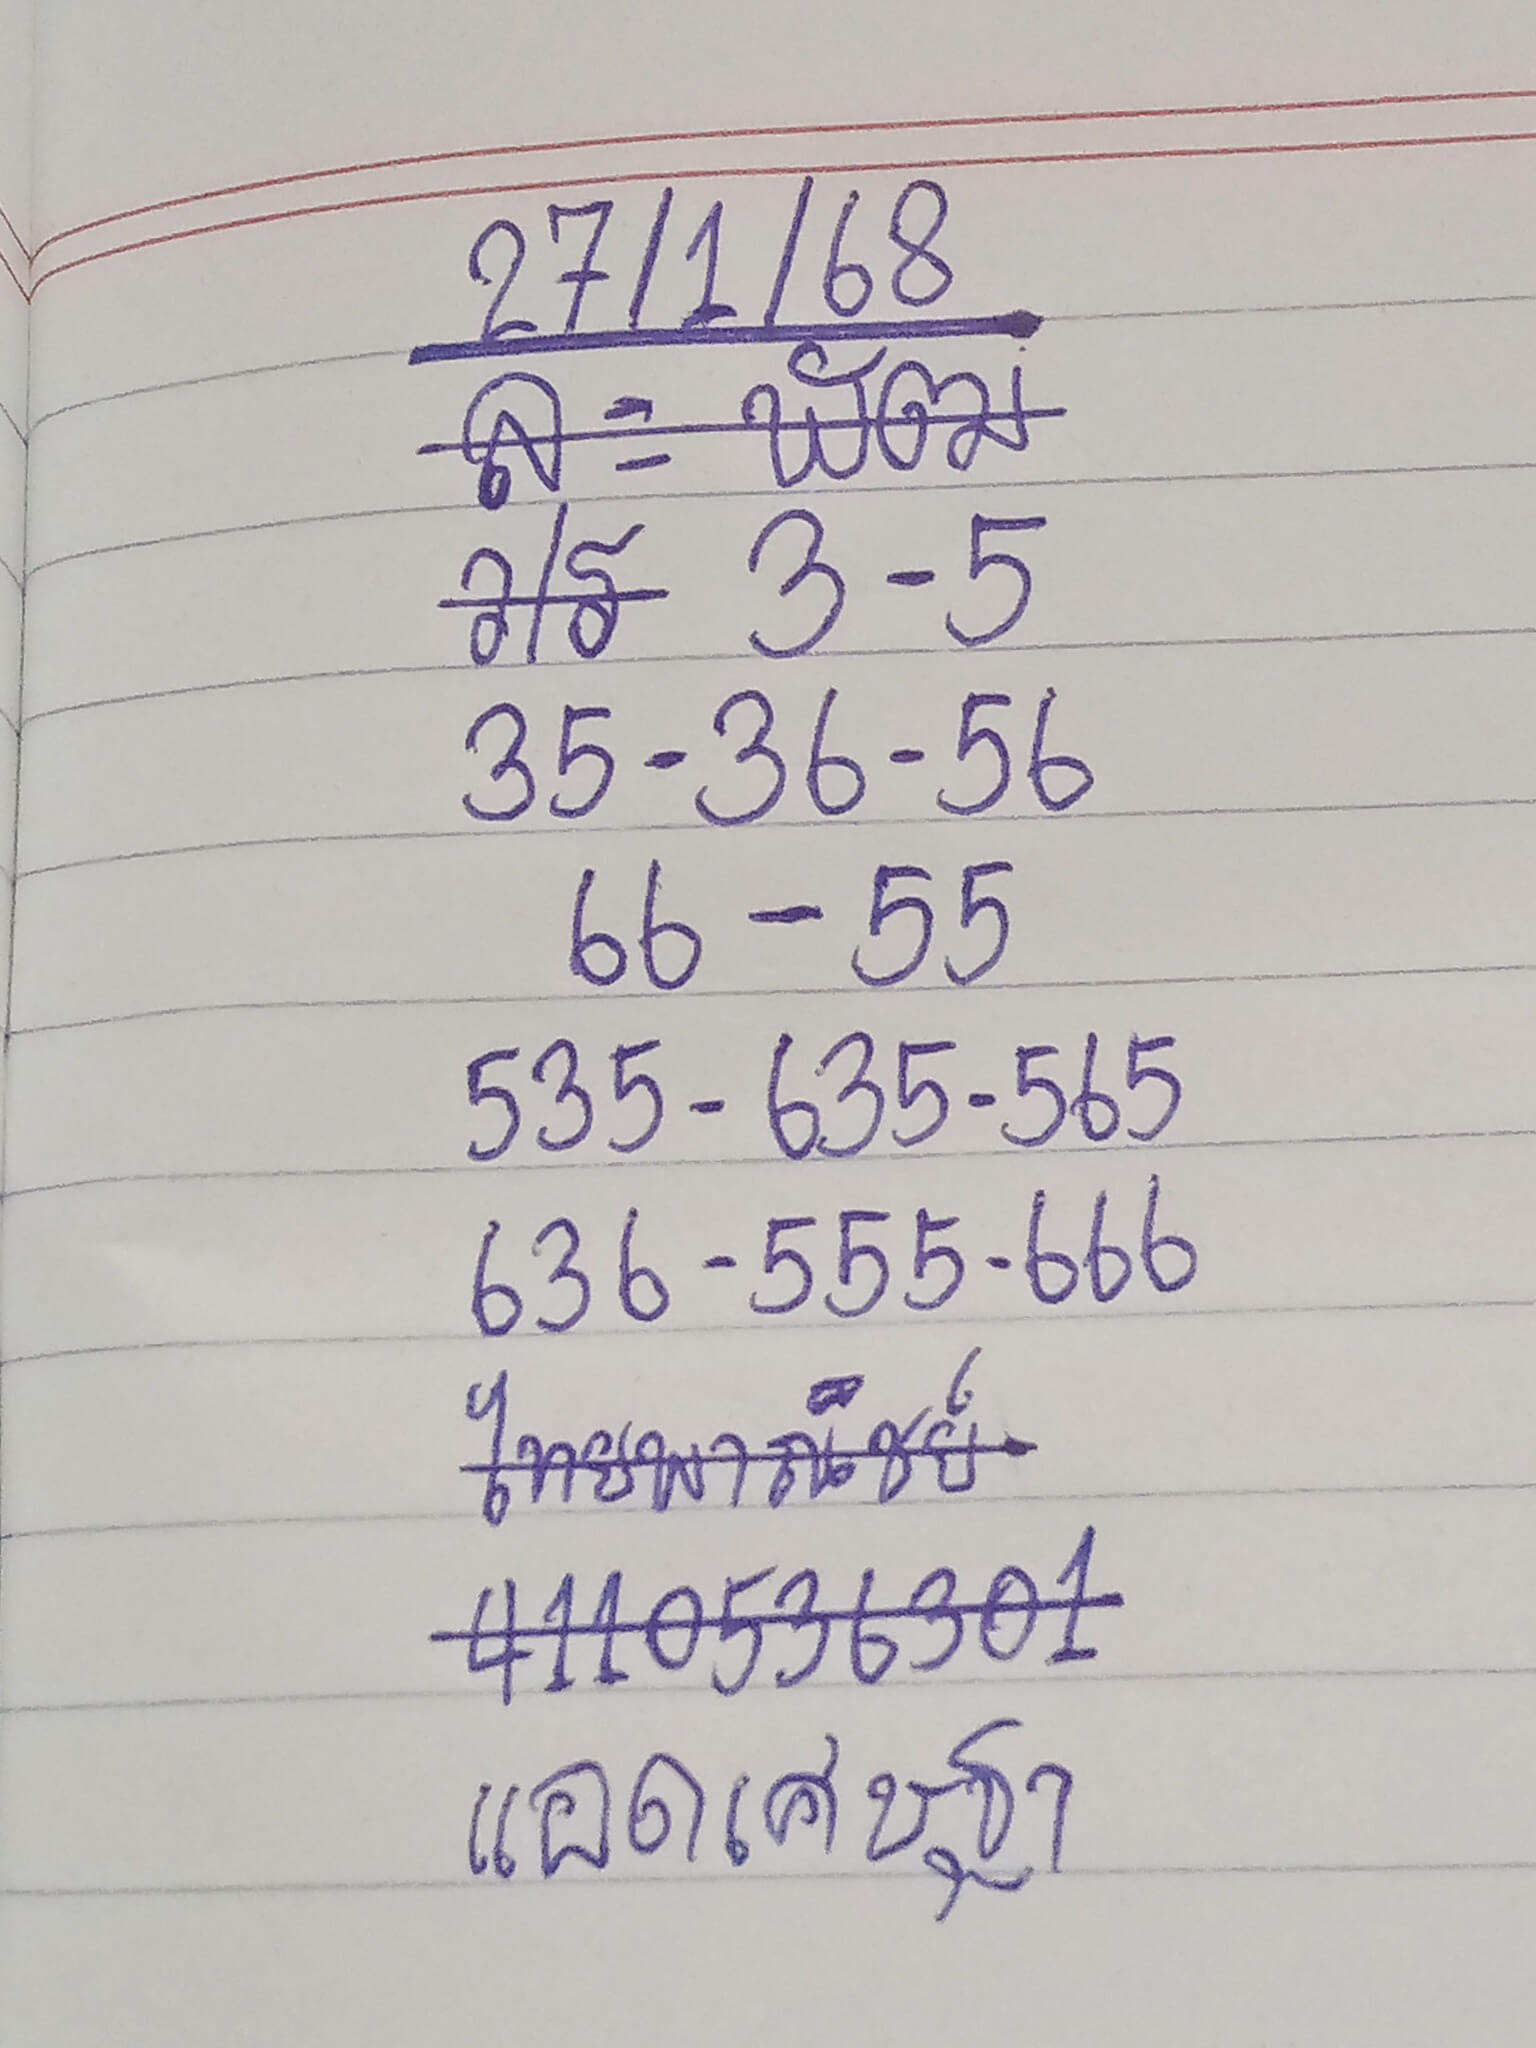 27/1/68
ว/ร 3-5
35-36-56
66-55
535-635-565
636-555-666
ไทยพาณิชย์
4110536301
แอดเศษฐา